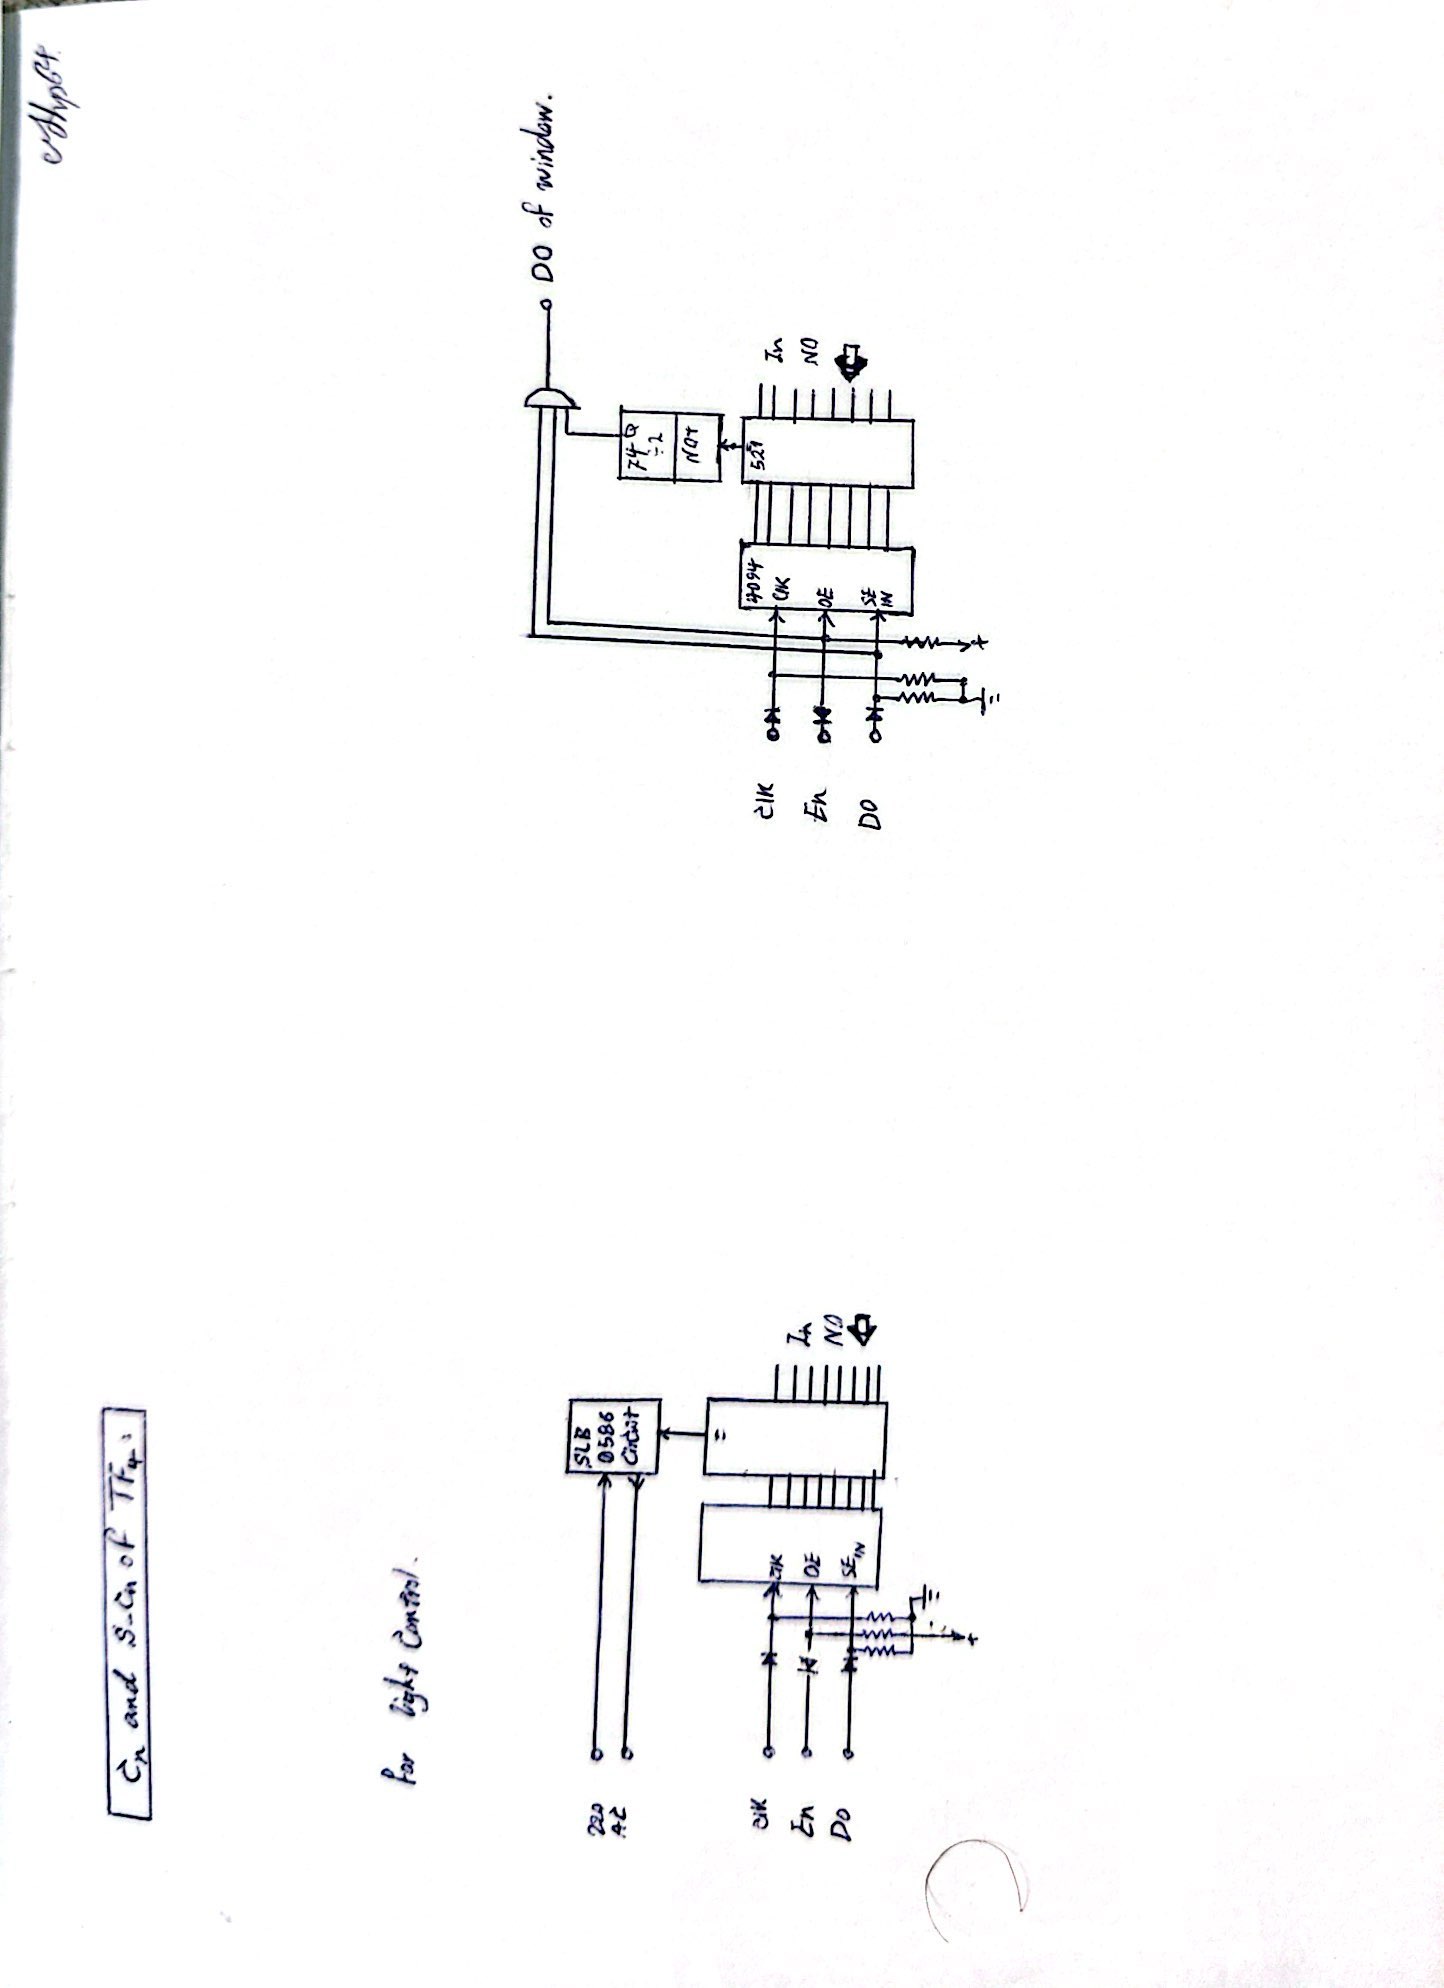 Cn and S-Cn of TF4:
For light Control.
220
AC
SLB
0586
Circuit
=
Clk
En
DO
CIK
OE
SE IN
In
NO
DO of window.
74 Q
÷2
NOT
Clk
En
DO
4094
CIK
OE
SE
IN
529
In
NO
+
+